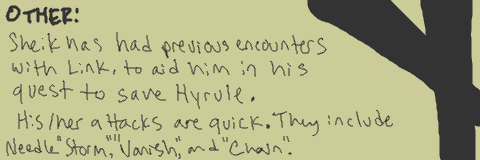 OTHER:
Sheik has had previous encounters
with Link, to aid him in his
quest to save Hyrule.
His/her attacks are quick. They include
Needle "Storm," "Vanish," and "Chain".